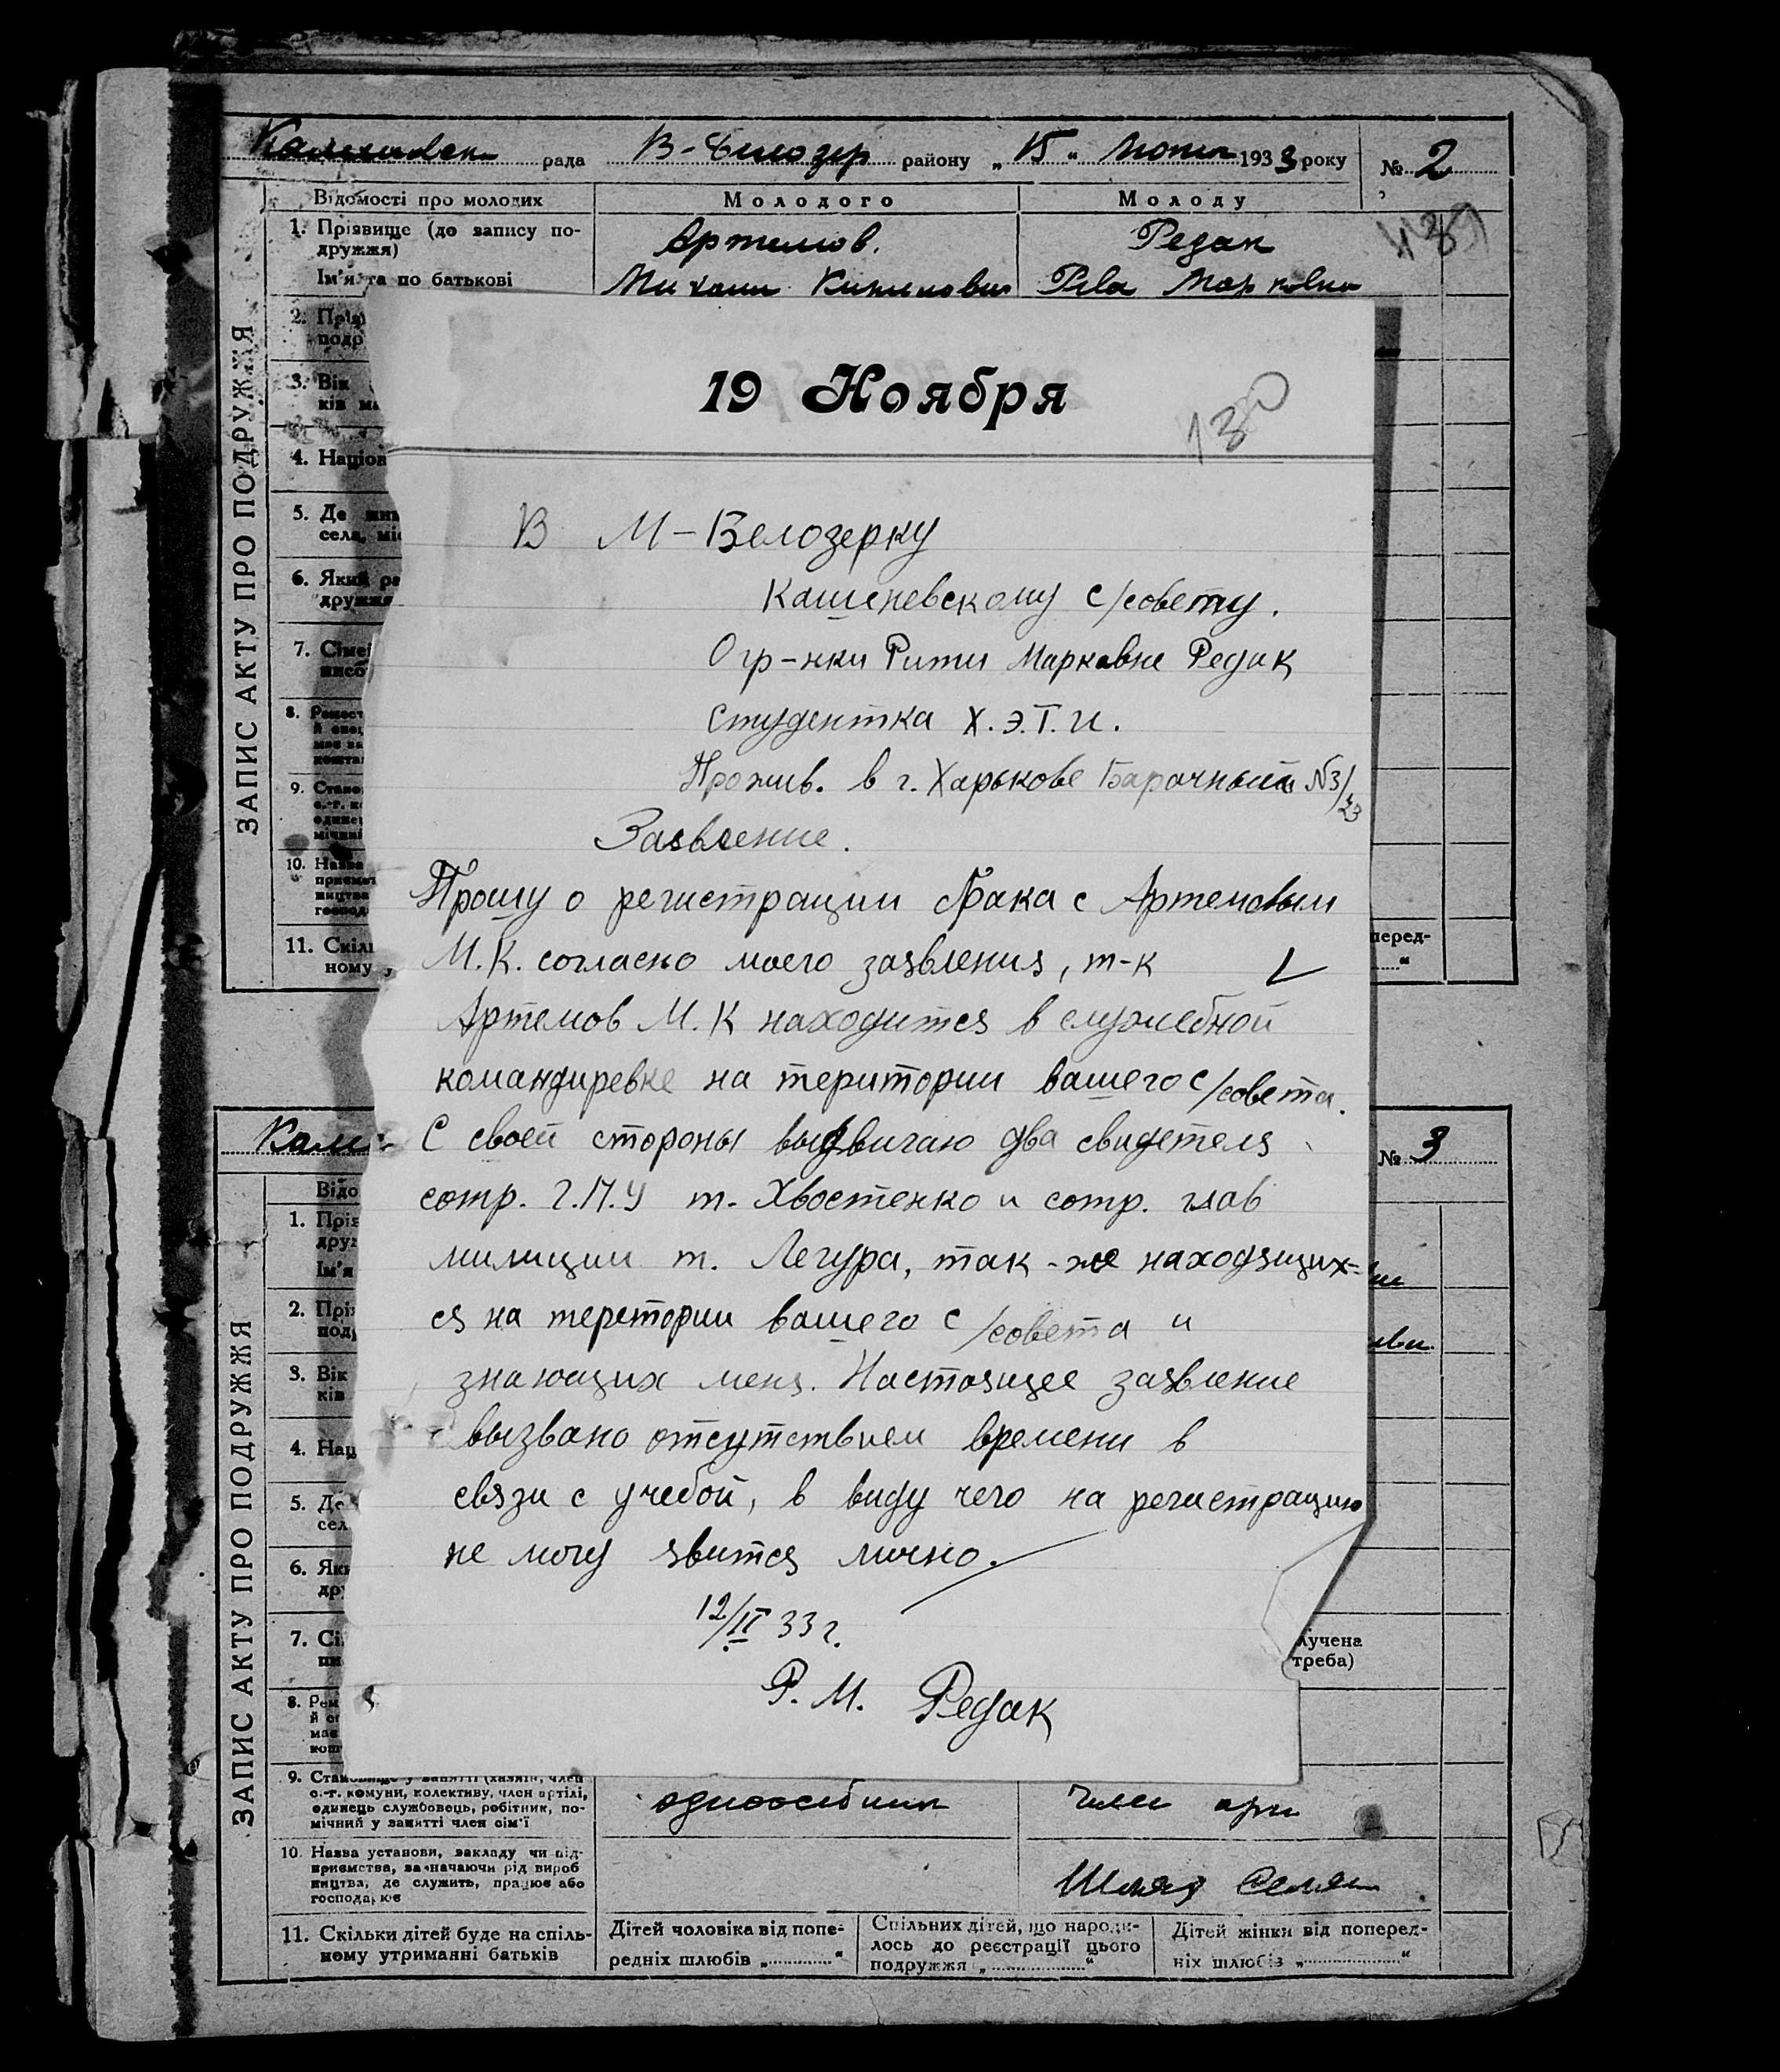 рада В-Білозер району „15" Лютня 1933 року № 2
Відомості про молодих Молодого Молоду
1. Прізвище (до запису по-
дружжя) Артемов. Редак
Ім'я та по батькові Михаил Рева Марковна
ЗАПИС АКТУ ПРО ПОДРУЖЖЯ
2.
3. Вік
4. Націон
5. Де
села,
6. Який
дружжя
7. Сімей
8.
9.
10.
11. Скіль
ному у
перед-
19 Ноября
130
В М-Белозерку
Кашеневскому с/совету.
От гр-нки Риты Марковне Редак
Студентка Х.Э.Т.И.
Прожив. в г. Харькове Барачный №3/23
Заявление.
Прошу о регистрации брака с Артемовым
М.К. согласно моего заявления, т-к
Артемов М.К находится в служебной
командиревке на територии вашего с/совета.
С своей стороны выдвигаю два свидетеля
сотр. Г.П.У т. Хвостенко и сотр. глав
милиции т. Легура, так-же находящих=
ся на теретории вашего с/совета и
знающих меня. Настоящее заявление
вызвано отсутствием времени в
связи с учебой, в виду чего на регистрацию
не могу явится лично.
12/II 33 г.
Р. М. Редак
№ 3
ЗАПИС АКТУ ПРО ПОДРУЖЖЯ
1.
2.
3. Вік
4. Нац
5. Де
6.
7.
лучена
треба)
8.
9. Становище у занятті (хазяїн, член
с.-г. комуни, колективу, член артілі,
одинець службовець, робітник, по-
мічний у занятті член сім'ї
одноосібник член арт
10. Назва установи, закладу чи під-
приємства, зазначаючи рід вироб
ництва, де служить, працює або
господарює
Шлях Селян
11. Скільки дітей буде на спіль-
ному утриманні батьків
Дітей чоловіка від попе-
редніх шлюбів „ “
Спільних дітей, що народи-
лось до реєстрації цього
подружжя „ “
Дітей жінки від поперед-
ніх шлюбів „ “